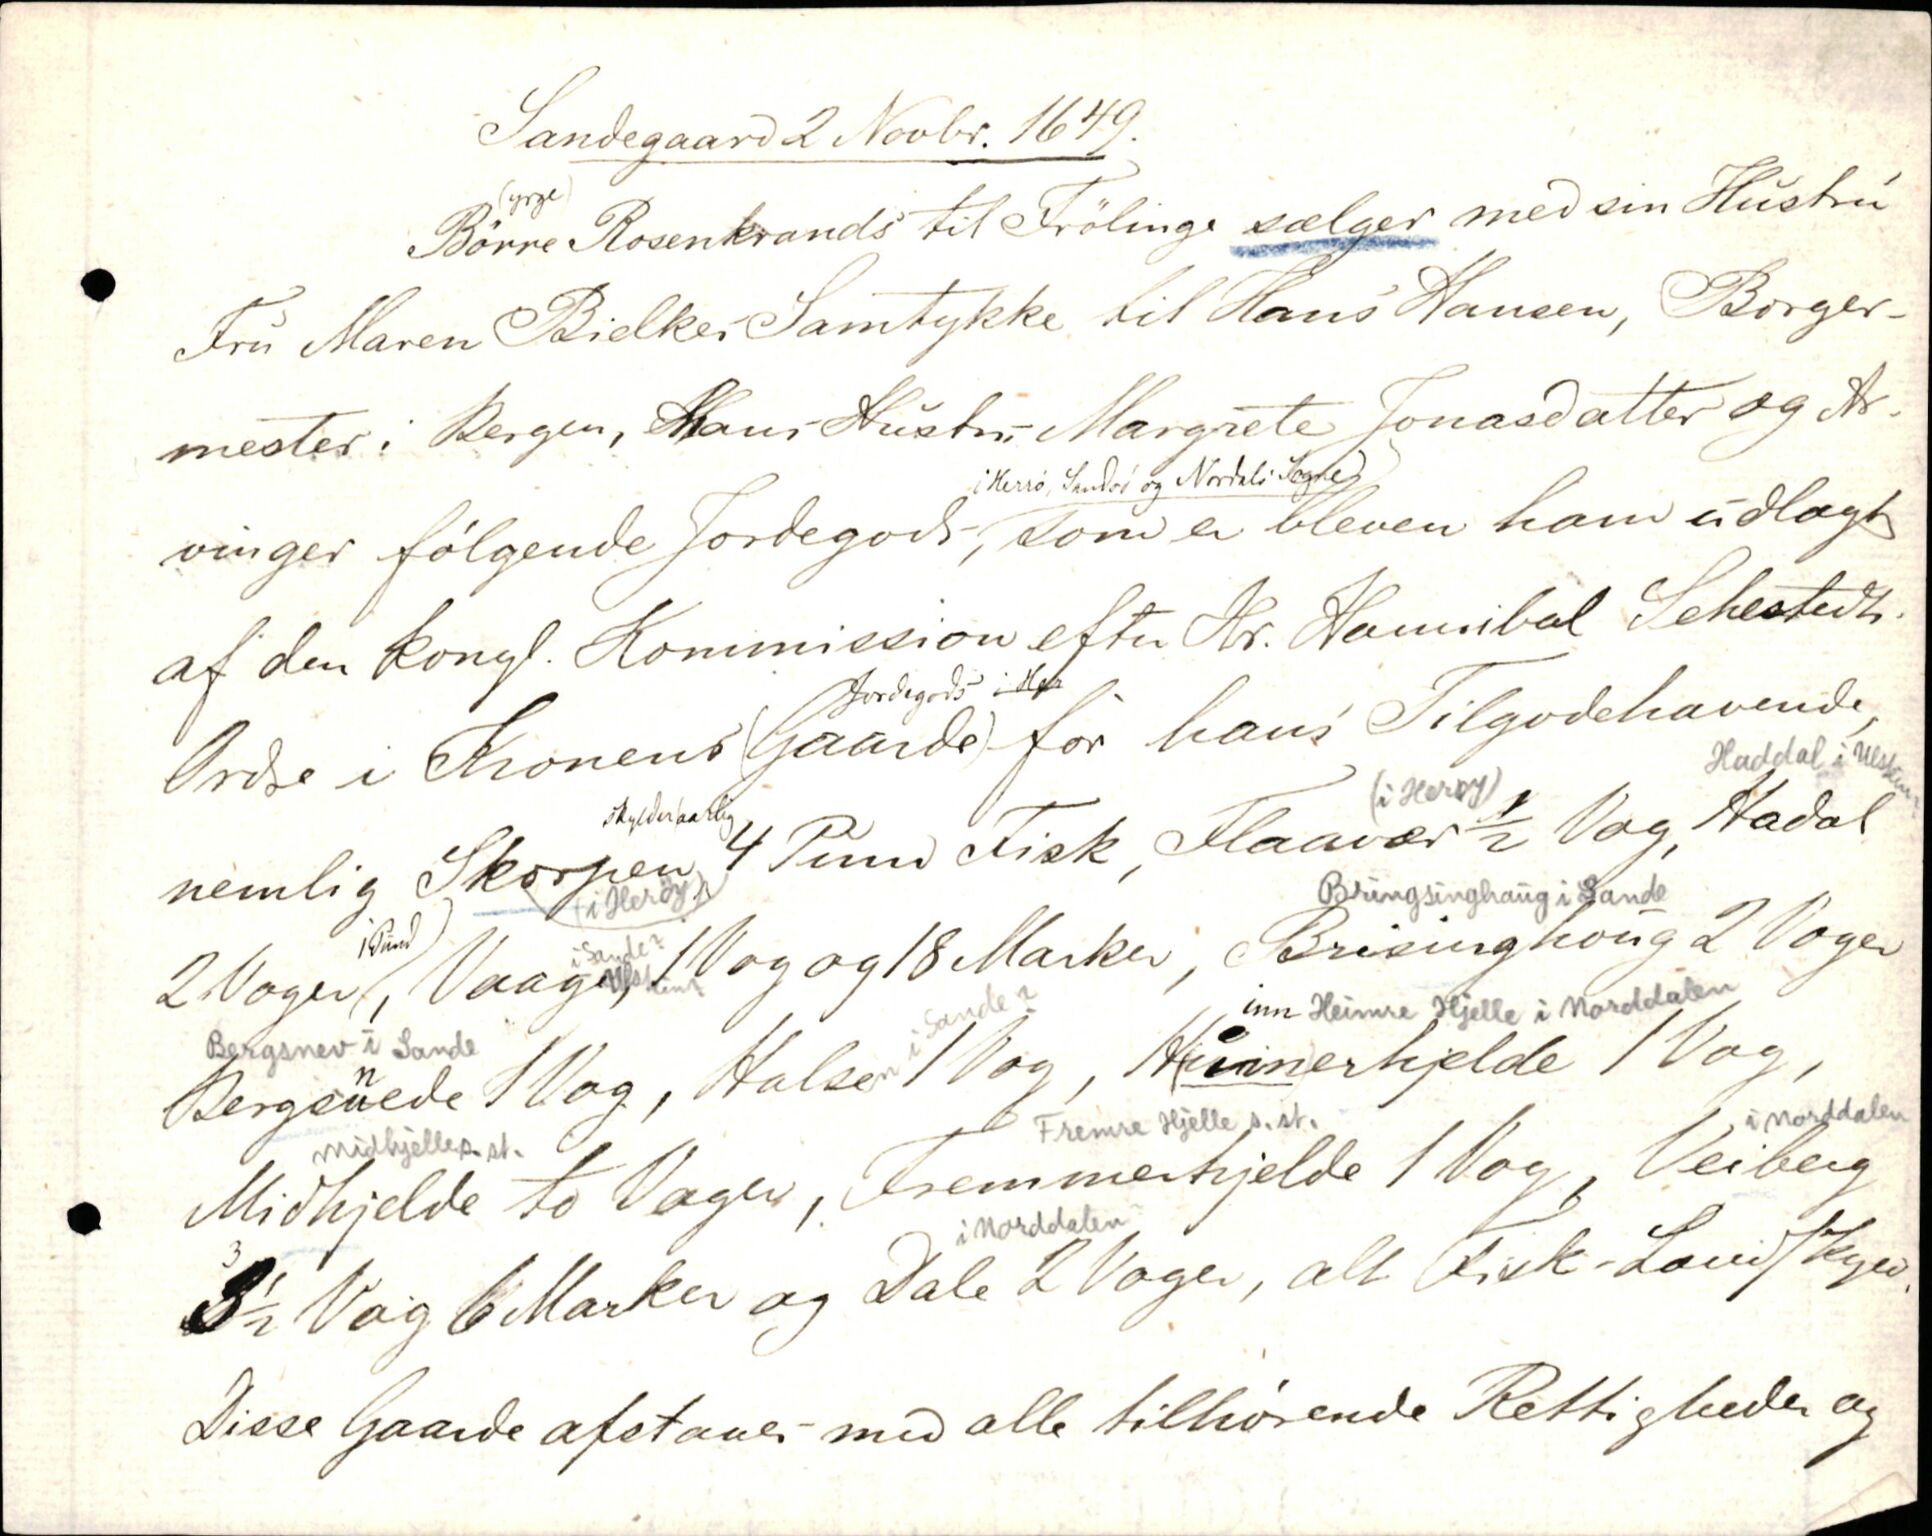 Sandegaard 2 Novbr. 1649.
(yrge)
Börre Rosenkrands til Frölinge sælger med sin Hustru
Fru Maren Bielkes Samtykke til Hans Hansen, Borger-
mester i Bergen, Hans Hustru Margrete Jonasdatter og Ar-
i Herrö, Sandö og Nordals Sogne)
vinger følgende Jordegods, som er bleven ham udlagt
af den kongl. Kommission efter Hr. Hannibal Sehesteds
Jordegods i Her
Ordre i Kronens (Gaarde) for hans Tilgodehavende,
Haddal i Ulstein
skylder aarlig (i Herøy)
nemlig Skorpen 4 Pund Fisk, Flaavær 1/2 Vog, Hadal
(i Herøy) Brüngsinghaug i Sande
1 Pund) i Sande? Ulstein?
2 Voger, Vaage, 1 Vog og 18 Marker, Brisinghoug 2 Voger
Bergsnev i Sande i Sande? inn Heimre Hjelle i Norddalen
Bergsnede 1 Vog, Halsen 1 Vog, Huinnerhjelde 1 Vog,
Midhjelle s. st. Fremre Hjelle s. st. i Norddalen
Midhjelde to Voger, Fremmerhjelde 1 Vog, Veiberg
3 i Norddalen
3 1/2 Vog 6 Marker og Dale 2 Voger, alt Fisk-Landskyld.
Disse Gaarde afstaaes med alle tilhørende Rettigheder og